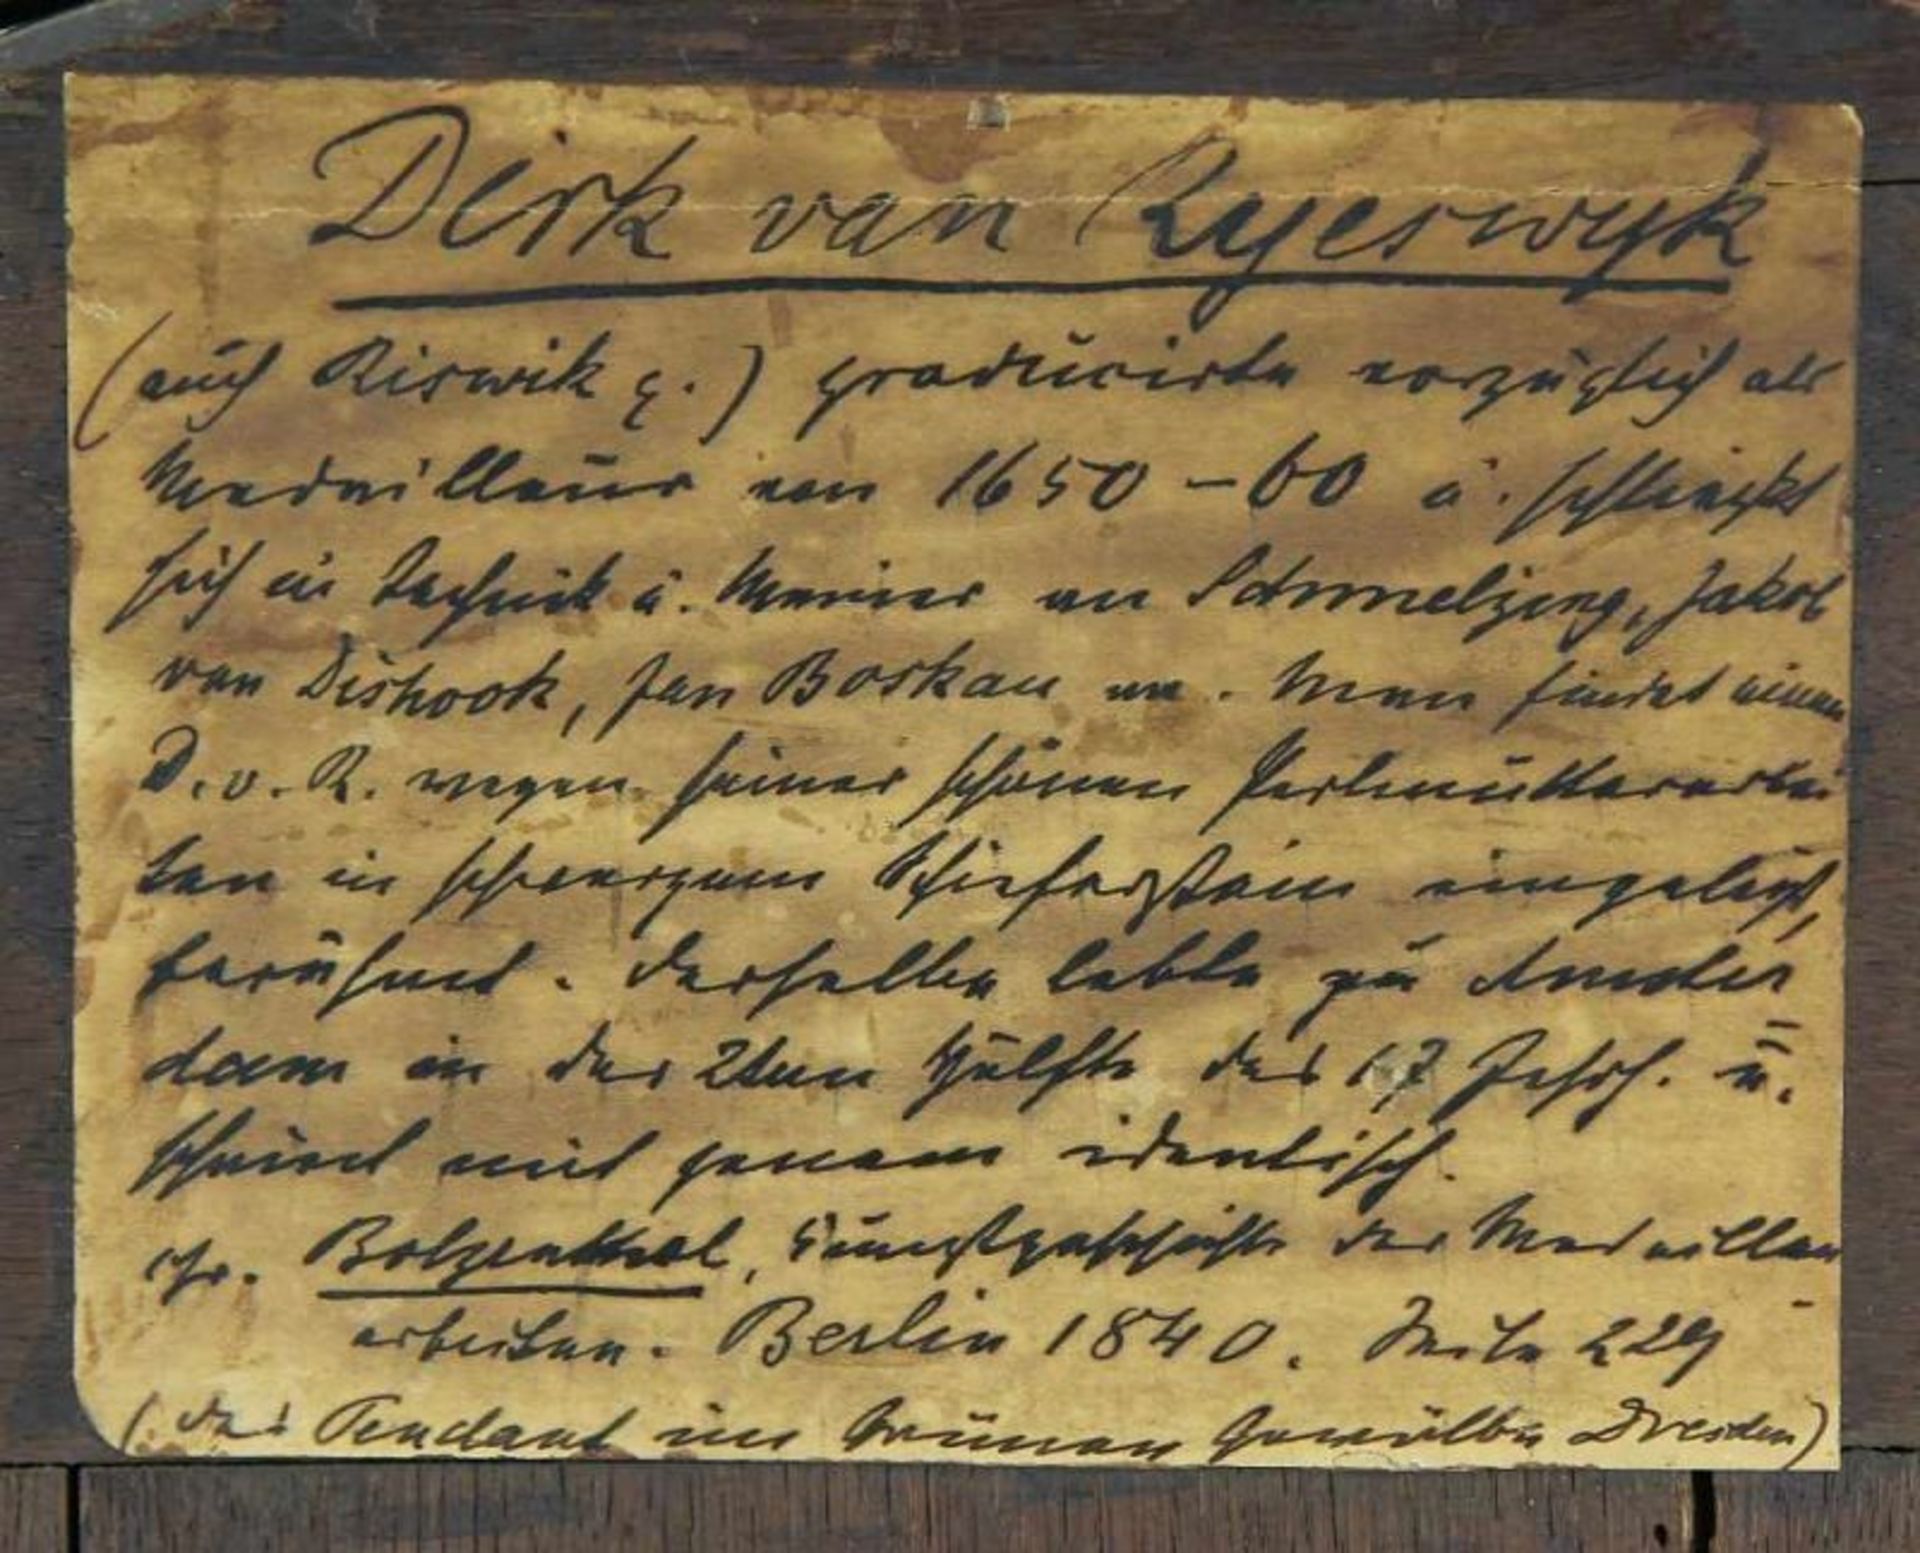 Dirk van Ryeswyk
(auch Riswik g.) producirte vorzüglich als
Medailleur von 1650-60 u. schliesst
sich in Technik u. Manier an Schmelzing, Jakob
van Dishook, Jan Boskam an. Man findet einen
D. v. R. wegen seiner schönen Perlmutterarbei
ten in schwarzem Schieferstein eingelegt,
berühmt. Derselbe lebte zu Amster
dam in der 2ten Hälfte des 17 Jahrh. u.
scheint mit jenem identisch.
Bolzenthal, Kunstgeschichte der Medaillen
arbeiten. Berlin 1840. Seite 229
(das Pendant im Grünen Gewölbe Dresden)